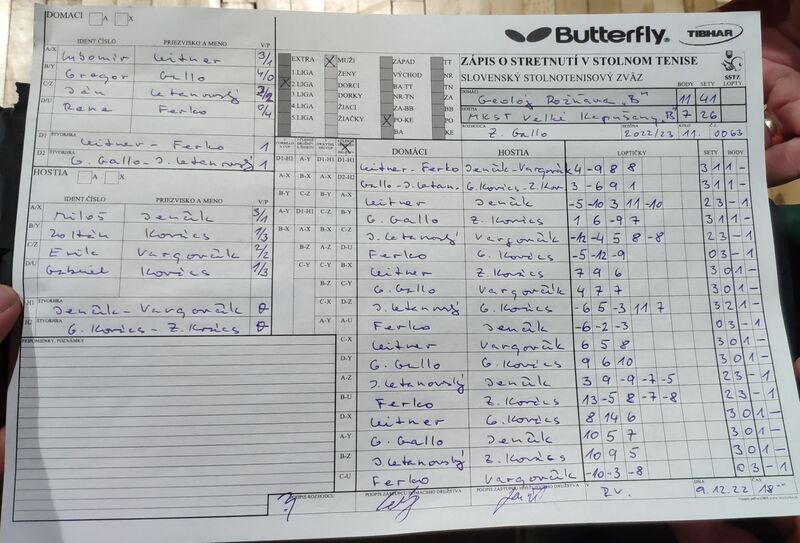 DOMÁCI A X
IDENT ČÍSLO PRIEZVISKO A MENO V/P
A/X Ľubomír Leitner 3/1
B/Y Gregor Gallo 4/0
C/Z Ján Letanovský 2/2
D/U Rene Ferko 0/4
D1 ŠTVORHRA
Leitner - Ferko 1
D2 ŠTVORHRA
G. Gallo - J. Letanovský 1
HOSTIA A X
IDENT ČÍSLO PRIEZVISKO A MENO V/P
A/X Miloš Jenčík 3/1
B/Y Zoltán Kovács 1/3
C/Z Erik Vargovčík 2/2
D/U Gabriel Kovács 1/3
H1 ŠTVORHRA
Jenčík - Vargovčík 0
H2 ŠTVORHRA
G. Kovács - Z. Kovács 0
PRIPOMIENKY, POZNÁMKY
Butterfly TIBHAR
ZÁPIS O STRETNUTÍ V STOLNOM TENISE
SLOVENSKÝ STOLNOTENISOVÝ ZVÄZ
SSTZ
EXTRA X MUŽI ZÁPAD TT
1.LIGA ŽENY VÝCHOD NR
X 2.LIGA DORCI BA-TT TN
3.LIGA DORKY NR-TN ZA
4.LIGA ŽIACI ZA-BB BB
5.LIGA ŽIAČKY X PO-KE PO
BA KE
BODY SETY LOPTY
DOMÁCI Geológ Rožňava „B" 11 41
HOSTIA MKST Veľké Kapušany „B" 7 26
ROZHODCA Z. Gallo SEZÓNA 2022/23 11. Č. 0063
DOMÁCI HOSTIA LOPTIČKY SETY BODY
D1-H1 Leitner - Ferko Jenčík - Vargovčík 4 -9 8 8 3 1 1 -
D2-H2 Gallo - J. Letan. G. Kovács - Z. Kov. 3 -6 9 1 3 1 1 -
A-X Leitner Jenčík -5 -10 3 11 -10 2 3 - 1
B-Y G. Gallo Z. Kovács 1 6 -9 7 3 1 1 -
C-Z J. Letanovský Vargovčík -12 -4 5 8 -8 2 3 - 1
D-U Ferko G. Kovács -5 -12 -9 0 3 - 1
A-Y Leitner Z. Kovács 7 9 6 3 0 1 -
G. Gallo Vargovčík 4 7 7 3 0 1 -
J. Letanovský G. Kovács -6 5 -3 11 7 3 2 1 -
Ferko Jenčík -6 -2 -3 0 3 - 1
C-X Leitner Vargovčík 6 5 8 3 0 1 -
D-Y G. Gallo G. Kovács 9 6 10 3 0 1 -
A-Z J. Letanovský Jenčík 3 9 -9 -7 -5 2 3 - 1
B-U Ferko Z. Kovács 13 -5 8 -7 -8 2 3 - 1
D-X Leitner G. Kovács 8 14 6 3 0 1 -
A-Y G. Gallo Jenčík 10 5 7 3 0 1 -
B-Z J. Letanovský Z. Kovács 10 9 5 3 0 1 -
C-U Ferko Vargovčík -10 -3 -8 0 3 - 1
PODPIS ROZHODCU PODPIS ZÁSTUPCU DOMÁCEHO DRUŽSTVA V RV. DŇA 9.12.22 ČAS 18